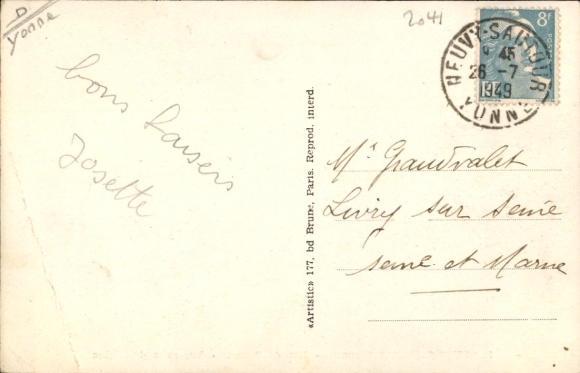 D
Yonne
2041
8F
POSTES
NEUVY-SAUTOUR
9 45
26-7
1949
YONNE
bons baisers
Josette
«Artistic» 177, bd Brune, Paris. Reprod. interd.
Mr Grandvalet
Livry sur Seine
Seine et Marne